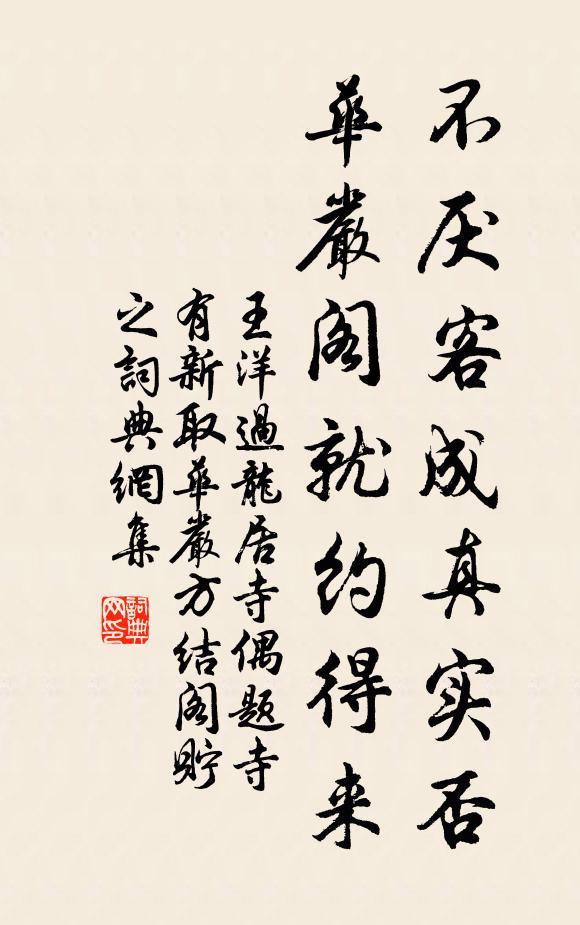 不厌客成真实否
華嚴阁就约得来
王洋過龍居寺偶题寺
有新取華嚴方结阁貯
之詞典網集
詞典网印